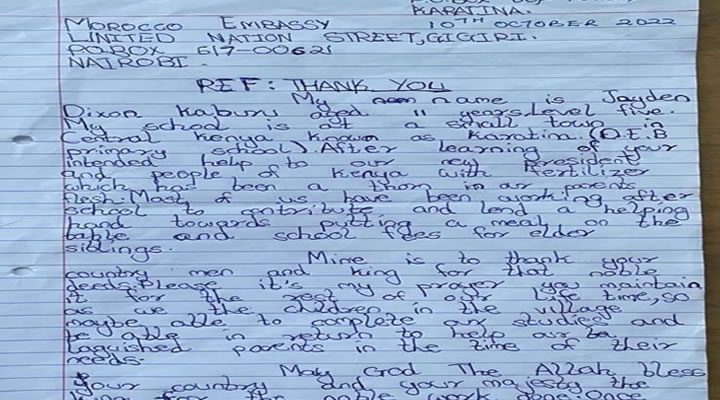 KARATINA.
MOROCCO EMBASSY 10TH OCTOBER 2022
UNITED NATION STREET, GIGIRI.
P.O.BOX 617-00621
NAIROBI.
REF: THANK YOU
My name is Jayden
Dixon Kaburu aged 11 years, Level five.
My school is at a small town in
Central Kenya known as Karatina (D.E.B
primary school). After learning of your
intended help to our new president
and people of Kenya with fertilizer
which has been a thorn in our parents
flesh. Most of us have been working after
school to contribute and lend a helping
hand towards putting a meal on the
table and school fees for elder
siblings.
Mine is to thank your
country men and king for that noble
deeds. Please it's my prayer you maintain
it for the rest of our life time, so
as we the children in the village
maybe able to complete our studies and
be able in return to help our
laguished parents in the time of their
needs.
May God The Allah bless
your country and your majesty the
king for the noble work done. Once